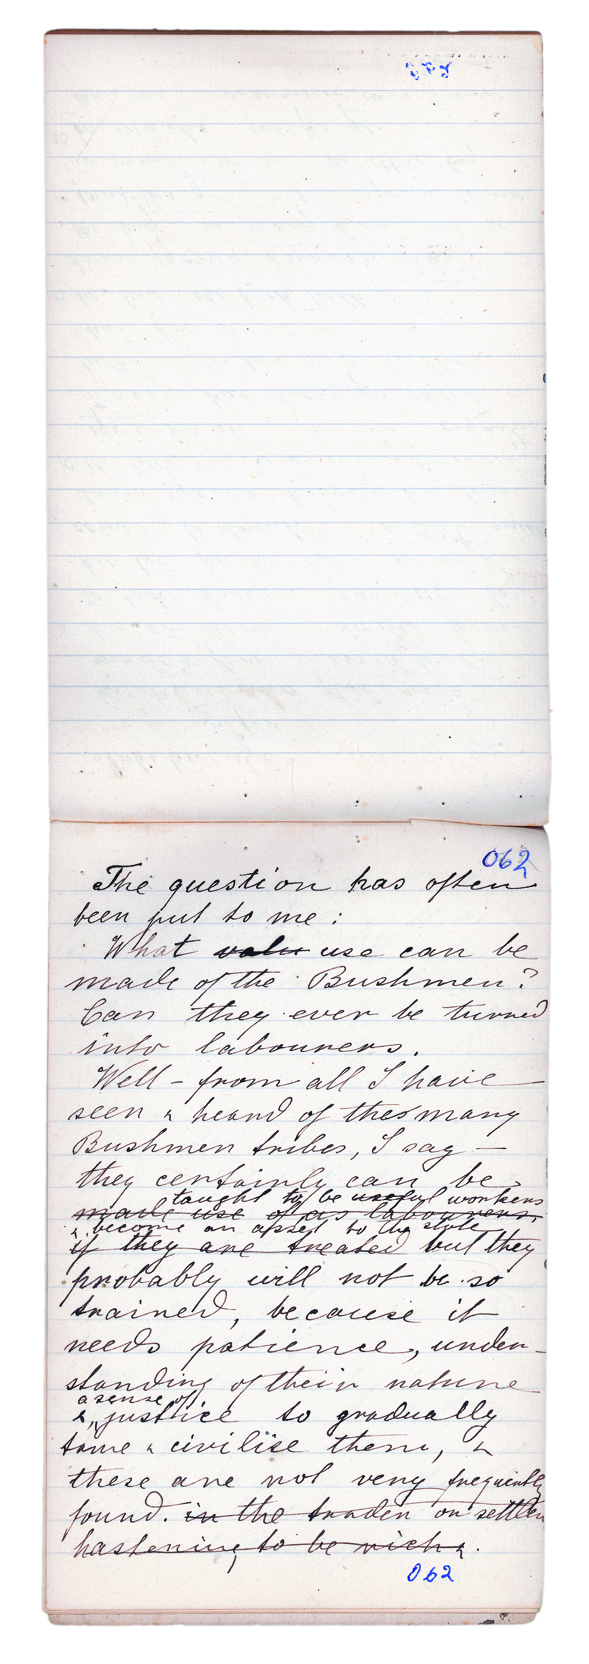 062
The question has often
been put to me:
What valu use can be
made of the Bushmen?
Can they ever be turned
into labourers.
Well - from all I have
seen & heard of the many
Bushmen tribes, I say -
they certainly can be
taught to be useful workers
made use of as labourers,
& become an asset to the state
if they are treated but they
probably will not be so
trained, because it
needs patience, under-
standing of their nature
a sense of
& justice to gradually
tame & civilise them, &
these are not very frequently
found. in the trader or settler
hastening to be rich.
062